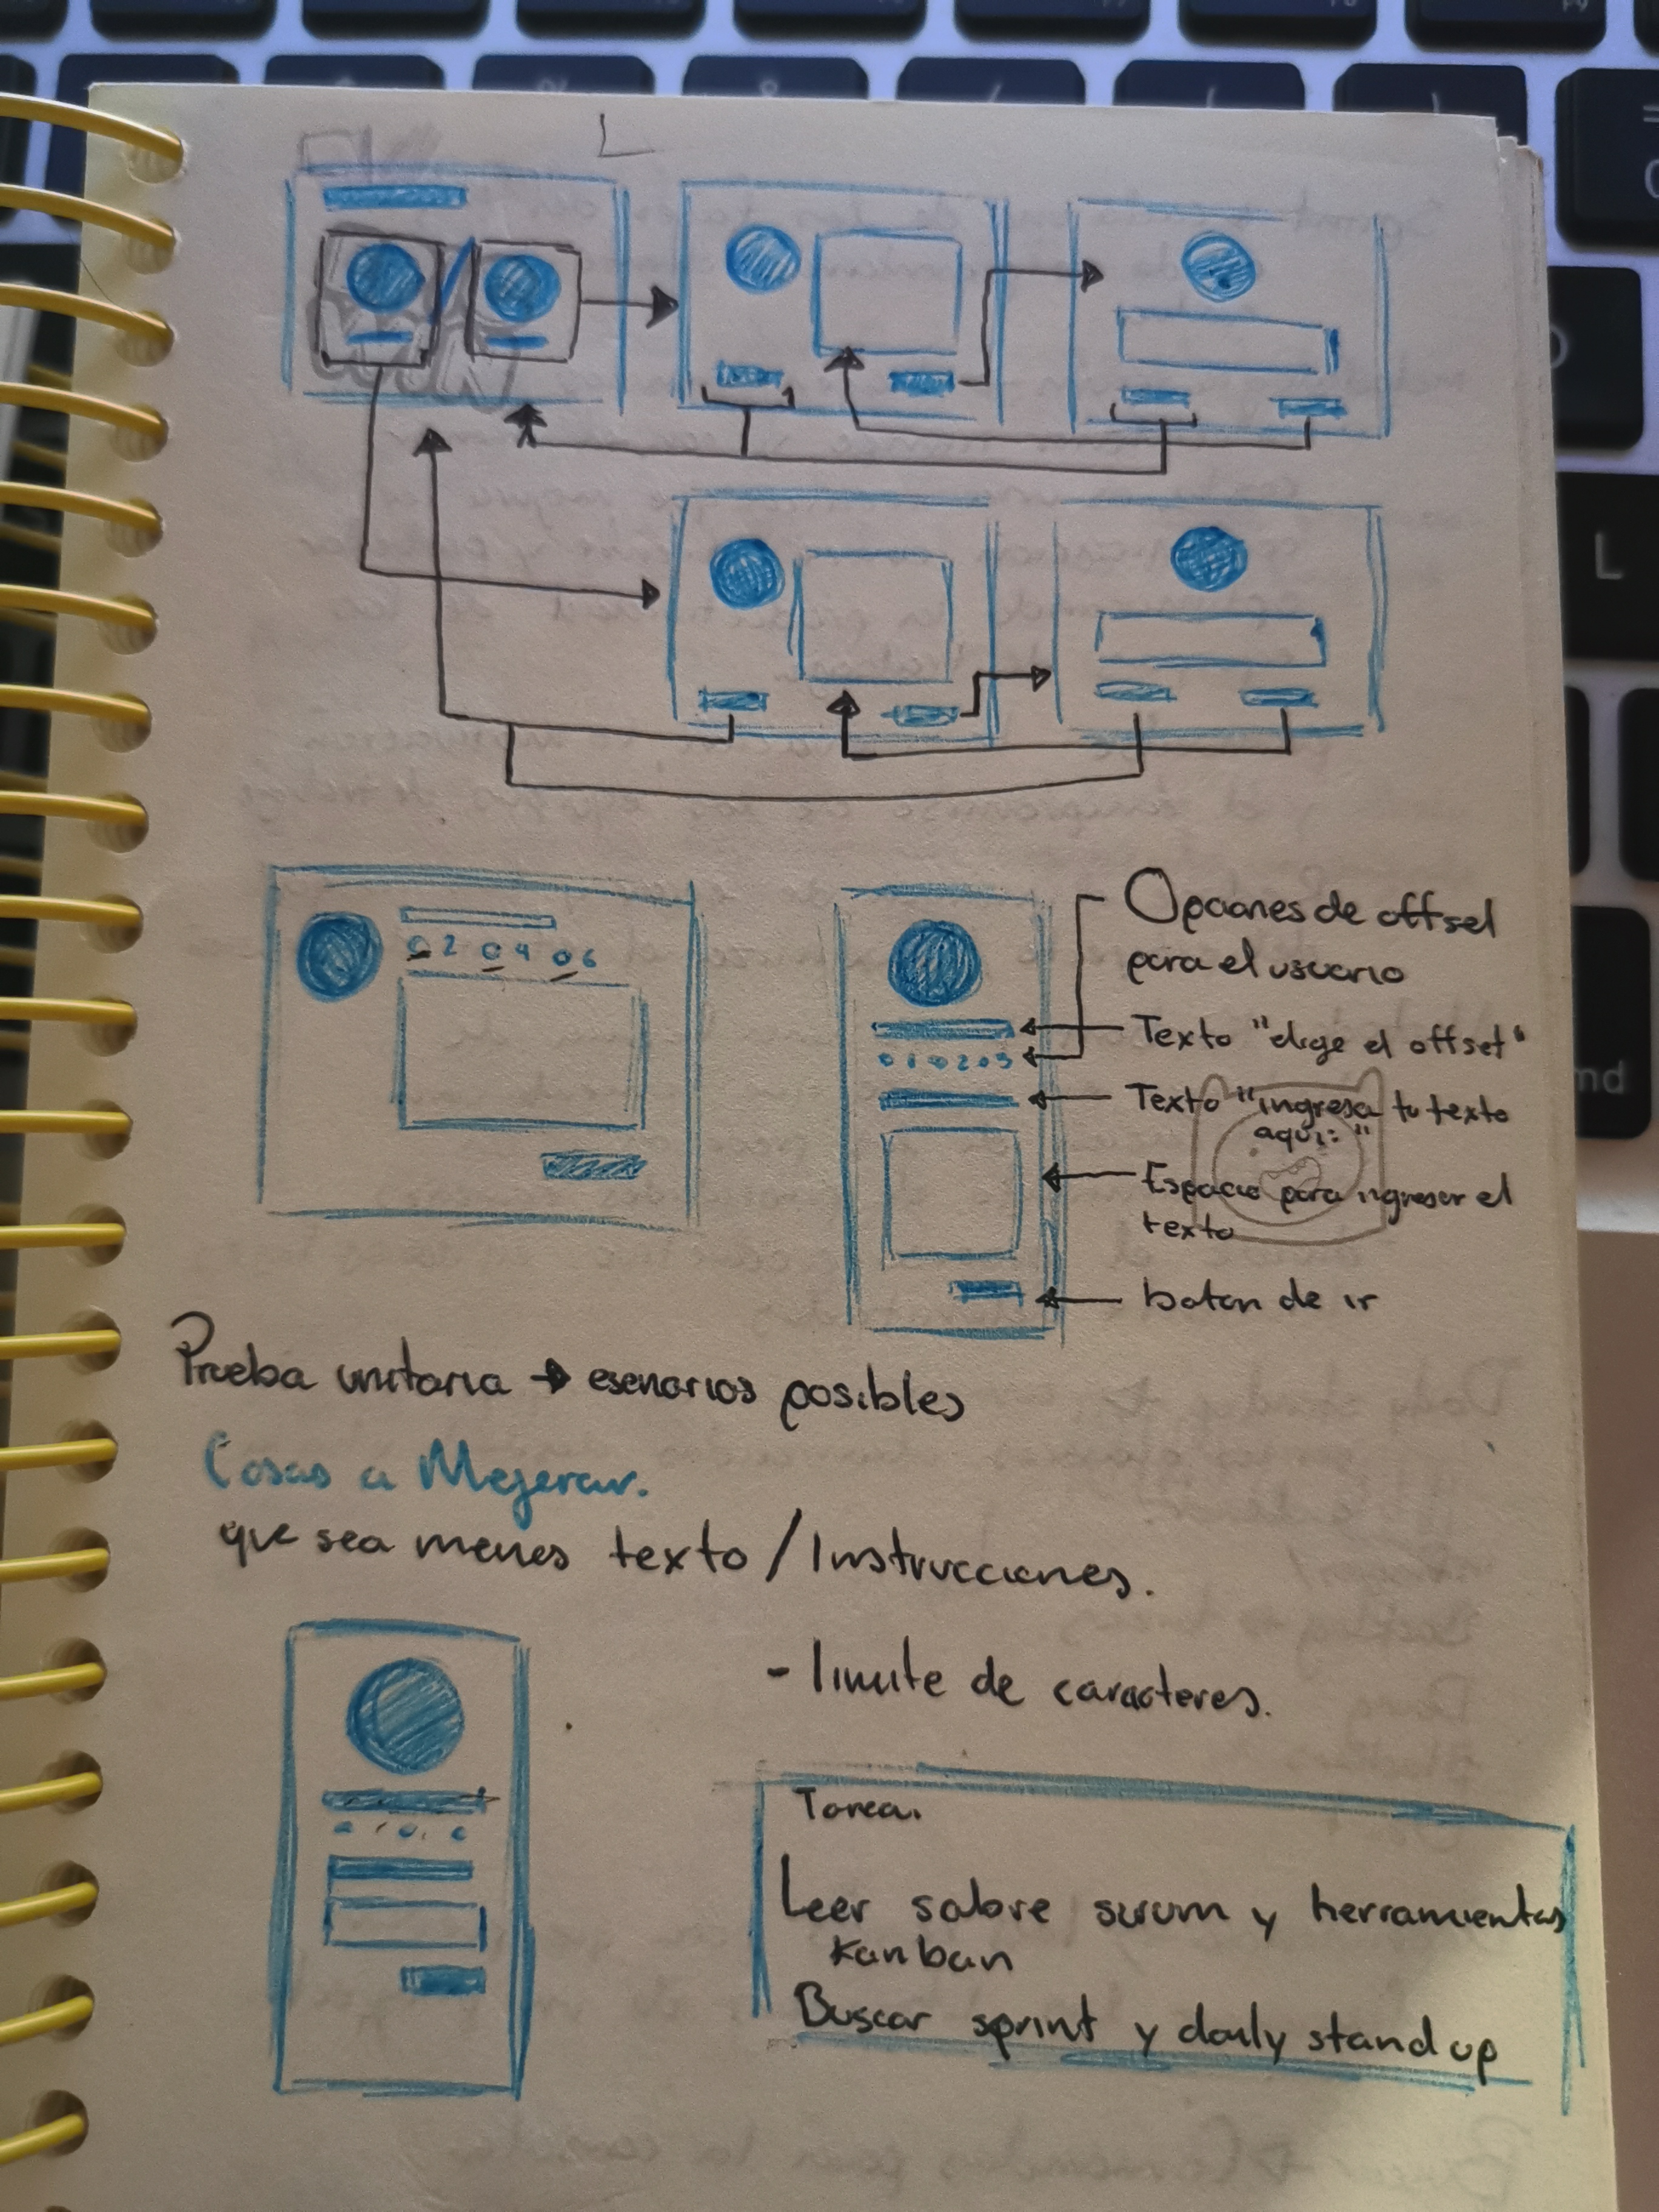 02 04 06
Opciones de offset
para el usuario
Texto "elige el offset"
010203
Texto "ingresa tu texto
aquí: "
Espacio para ingresar el
texto
boton de ir
Prueba unitaria → esenarios posibles
Cosas a Mejorar.
que sea menos texto / Instrucciones.
- limite de caracteres.
Tarea.
Leer sobre scrum y herramientas
Kanban
Buscar sprint y daily stand up
L